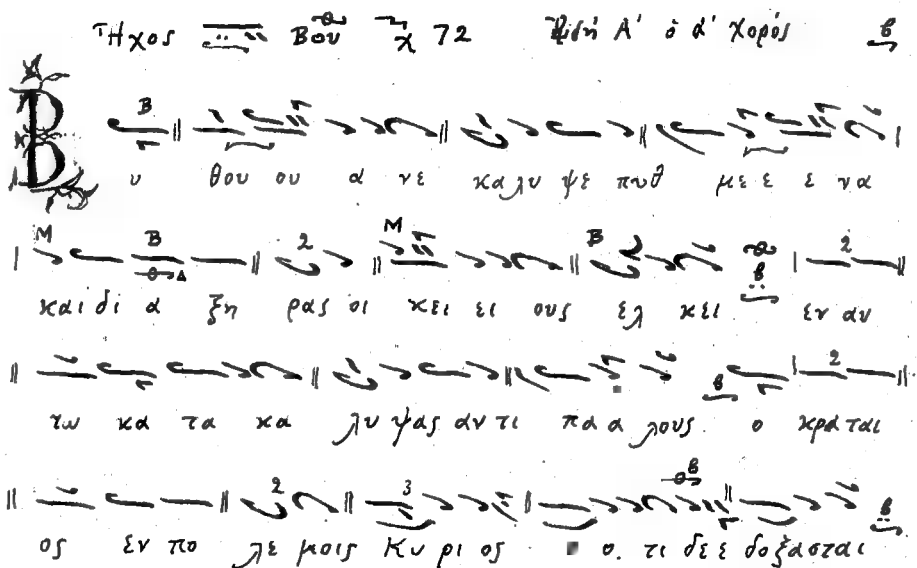 Ἦχος Βου χ 72 ᾨδή Α' ὁ ἀ' χορός β
Β Β
υ θου ου α νε κα λυ ψε πυθ με ε ε να
Μ Β 2 Μ Β β 2
και δι α ξη ρας οι κει ει ους ελ κει εν αυ
2 β
τω κα τα κα λυ ψας αν τι πα α λους ο κρα ται
2 3 β β
ος εν πο λε μοις Κυ ρι ος ο. τι δε ε δοξασται